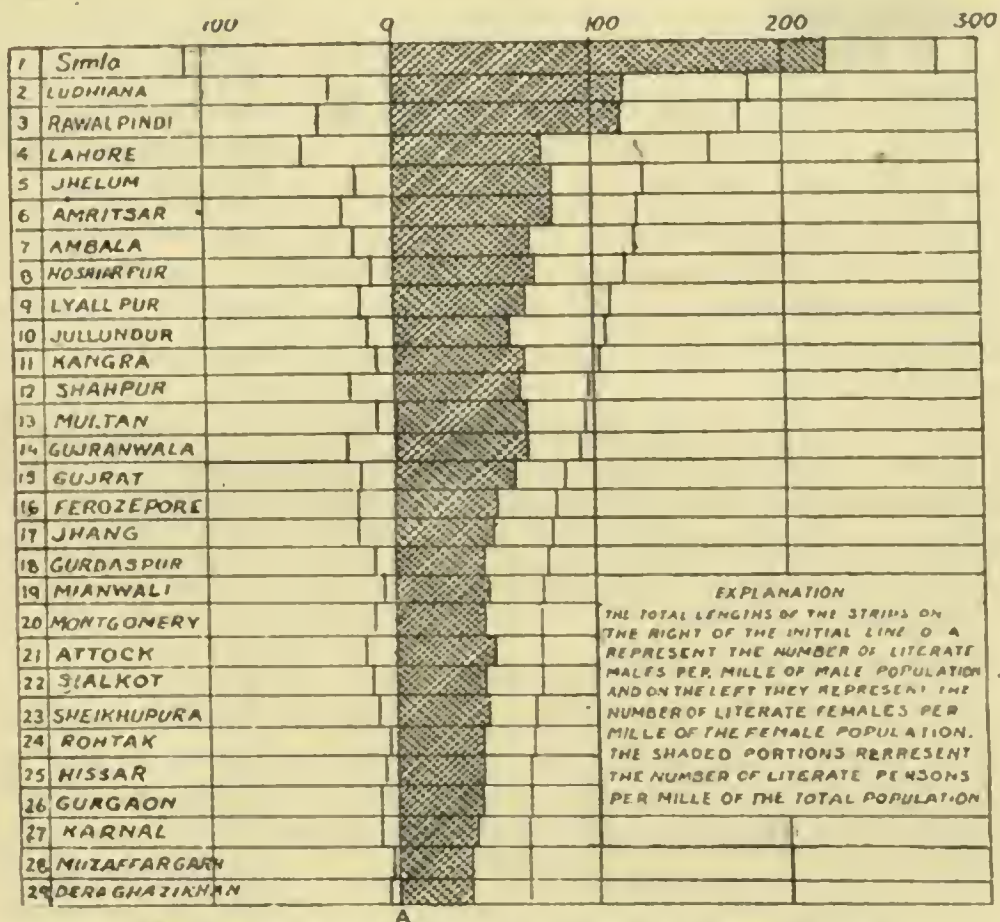 100 0 100 200 300
1 Simla
2 LUDHIANA
3 RAWALPINDI
4 LAHORE
5 JHELUM
6 AMRITSAR
7 AMBALA
8 HOSHIARPUR
9 LYALLPUR
10 JULLUNDUR
11 KANGRA
12 SHAHPUR
13 MULTAN
14 GUJRANWALA
15 GUJRAT
16 FEROZEPORE
17 JHANG
18 GURDASPUR
19 MIANWALI
20 MONTGOMERY
21 ATTOCK
22 SIALKOT
23 SHEIKHUPURA
24 ROHTAK
25 HISSAR
26 GURGAON
27 KARNAL
28 MUZAFFARGARH
29 DERA GHAZI KHAN
A
EXPLANATION
THE TOTAL LENGTHS OF THE STRIPS ON
THE RIGHT OF THE INITIAL LINE O A
REPRESENT THE NUMBER OF LITERATE
MALES PER MILLE OF MALE POPULATION
AND ON THE LEFT THEY REPRESENT THE
NUMBER OF LITERATE FEMALES PER
MILLE OF THE FEMALE POPULATION.
THE SHADED PORTIONS RERRESENT
THE NUMBER OF LITERATE PERSONS
PER MILLE OF THE TOTAL POPULATION